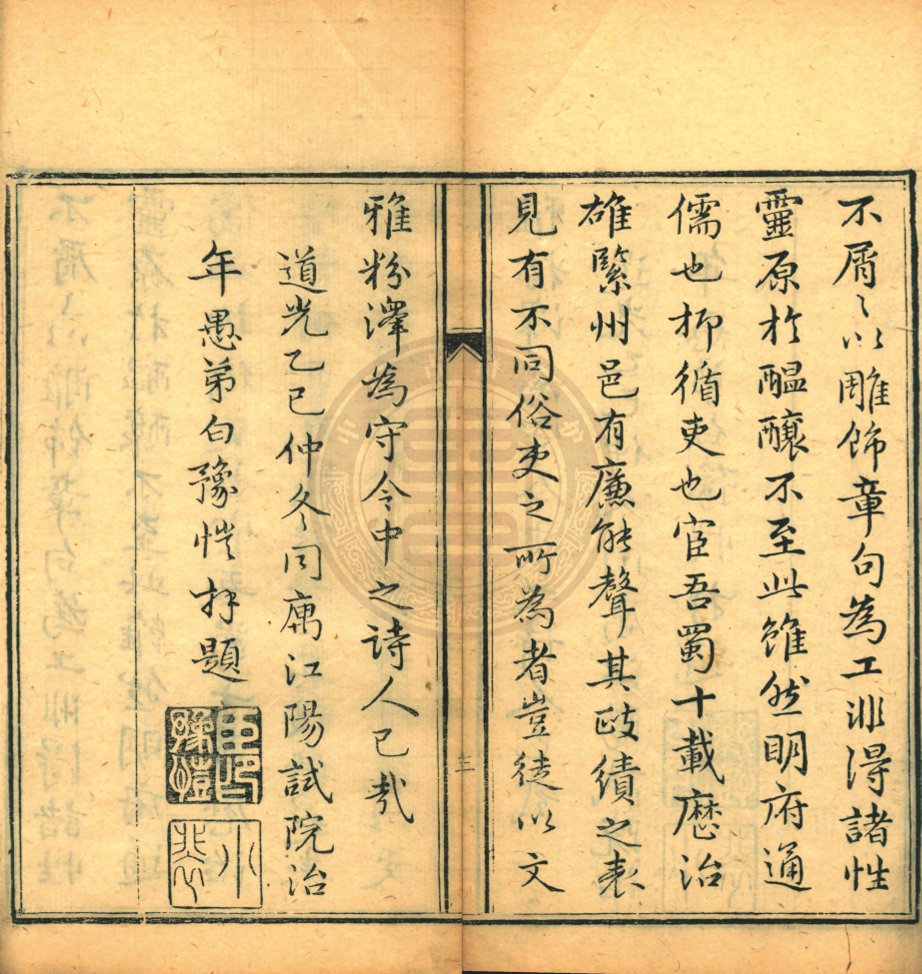 不屑〻以雕飾章句為工非得諸性
靈原於醞釀不至此雖然明府通
儒也抑循吏也宦吾蜀十載歷治
雄緊州邑有廉能聲其政績之表
見有不同俗吏之所為者豈徒以文
雅粉澤為守令中之詩人已哉
道光乙巳仲冬同寓江陽試院治
年愚弟白豫愷拜題
三